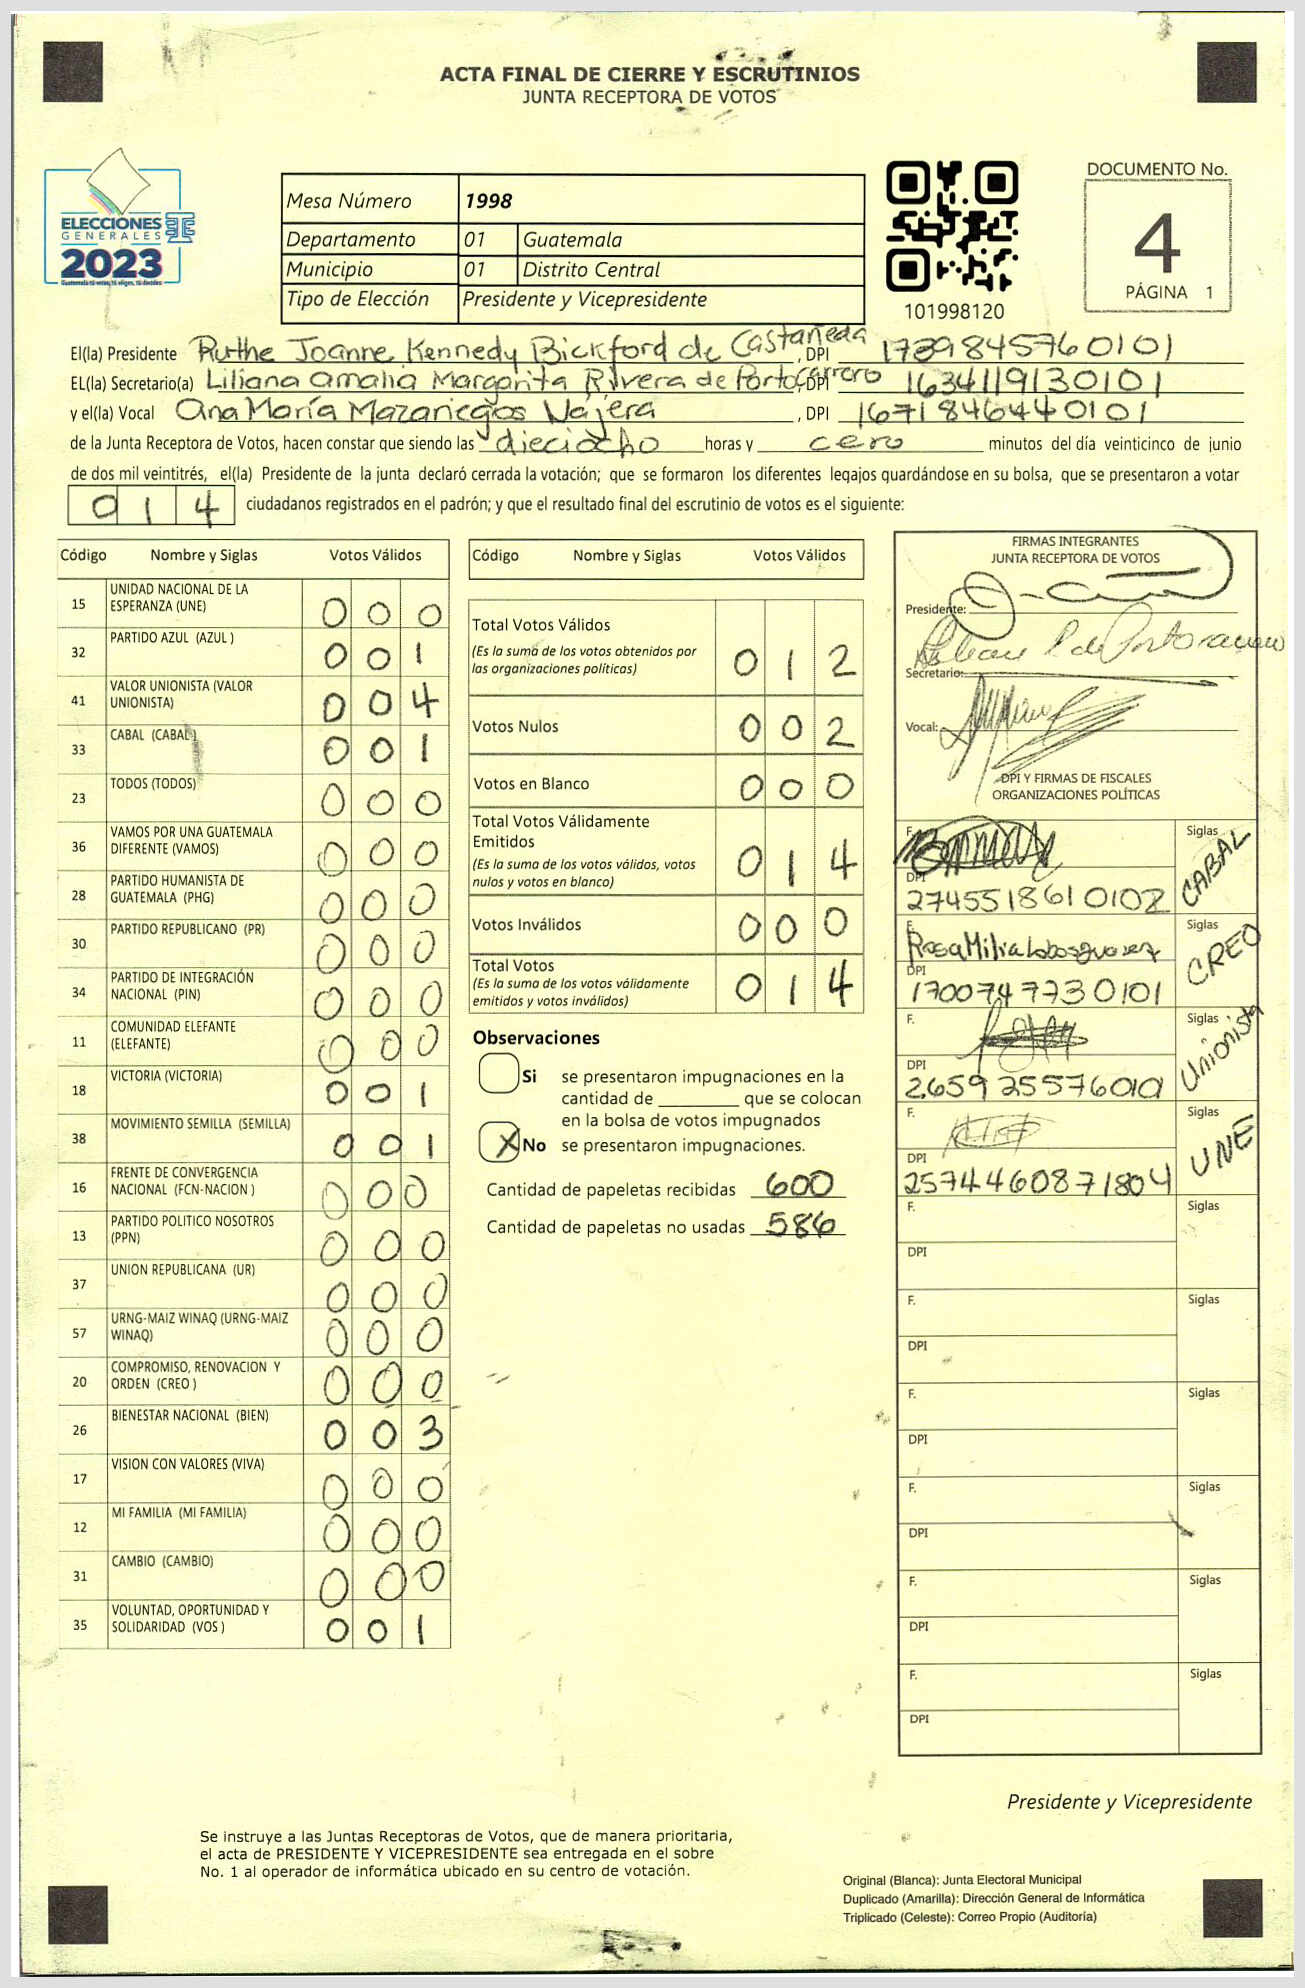 ACTA FINAL DE CIERRE Y ESCRUTINIOS
JUNTA RECEPTORA DE VOTOS
ELECCIONES
GENERALES
2023
Mesa Número 1998
Departamento 01 Guatemala
Municipio 01 Distrito Central
Tipo de Elección Presidente y Vicepresidente
101998120
DOCUMENTO No.
4
PÁGINA 1
El(la) Presidente Ruthe Joanne Kennedy Bickford de Castañeda, DPI 1739845760101
EL(la) Secretario(a) Liliana Amalia Margarita Rivera de Portocarrero, DPI 1634119130101
y el(la) Vocal Ana María Mazariegos Najera, DPI 1671846440101
de la Junta Receptora de Votos, hacen constar que siendo las dieciocho horas y cero minutos del día veinticinco de junio
de dos mil veintitrés, el(la) Presidente de la junta declaró cerrada la votación; que se formaron los diferentes legajos guardándose en su bolsa, que se presentaron a votar
014 ciudadanos registrados en el padrón; y que el resultado final del escrutinio de votos es el siguiente:
Código Nombre y Siglas Votos Válidos
15 UNIDAD NACIONAL DE LA ESPERANZA (UNE) 000
32 PARTIDO AZUL (AZUL ) 001
41 VALOR UNIONISTA (VALOR UNIONISTA) 004
33 CABAL (CABAL ) 001
23 TODOS (TODOS) 000
36 VAMOS POR UNA GUATEMALA DIFERENTE (VAMOS) 000
28 PARTIDO HUMANISTA DE GUATEMALA (PHG) 000
30 PARTIDO REPUBLICANO (PR) 000
34 PARTIDO DE INTEGRACIÓN NACIONAL (PIN) 000
11 COMUNIDAD ELEFANTE (ELEFANTE) 000
18 VICTORIA (VICTORIA) 001
38 MOVIMIENTO SEMILLA (SEMILLA) 001
16 FRENTE DE CONVERGENCIA NACIONAL (FCN-NACION ) 000
13 PARTIDO POLITICO NOSOTROS (PPN) 000
37 UNION REPUBLICANA (UR) 000
57 URNG-MAIZ WINAQ (URNG-MAIZ WINAQ) 000
20 COMPROMISO, RENOVACION Y ORDEN (CREO ) 000
26 BIENESTAR NACIONAL (BIEN) 003
17 VISION CON VALORES (VIVA) 000
12 MI FAMILIA (MI FAMILIA) 000
31 CAMBIO (CAMBIO) 000
35 VOLUNTAD, OPORTUNIDAD Y SOLIDARIDAD (VOS ) 001
Código Nombre y Siglas Votos Válidos
Total Votos Válidos 012
(Es la suma de los votos obtenidos por
las organizaciones políticas)
Votos Nulos 002
Votos en Blanco 000
Total Votos Válidamente
Emitidos 014
(Es la suma de los votos válidos, votos
nulos y votos en blanco)
Votos Inválidos 000
Total Votos 014
(Es la suma de los votos válidamente
emitidos y votos inválidos)
Observaciones
Si se presentaron impugnaciones en la
cantidad de ________ que se colocan
en la bolsa de votos impugnados
X No se presentaron impugnaciones.
Cantidad de papeletas recibidas 600
Cantidad de papeletas no usadas 586
FIRMAS INTEGRANTES
JUNTA RECEPTORA DE VOTOS
Presidente:
Secretario:
Vocal:
DPI Y FIRMAS DE FISCALES
ORGANIZACIONES POLÍTICAS
F. Siglas CABAL
DPI 2745518610102
F. Rosa Milia Lobos Siglas CREO
DPI 1700747730101
F. Siglas Unionista
DPI
F. Siglas UNE
DPI 2574460871804
F. Siglas
DPI
F. Siglas
DPI
F. Siglas
DPI
F. Siglas
DPI
F. Siglas
DPI
F. Siglas
DPI
Presidente y Vicepresidente
Se instruye a las Juntas Receptoras de Votos, que de manera prioritaria,
el acta de PRESIDENTE Y VICEPRESIDENTE sea entregada en el sobre
No. 1 al operador de informática ubicado en su centro de votación.
Original (Blanca): Junta Electoral Municipal
Duplicado (Amarilla): Dirección General de Informática
Triplicado (Celeste): Correo Propio (Auditoría)